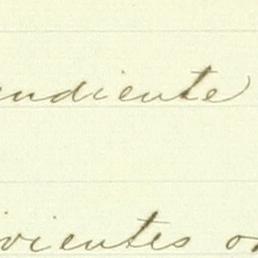 endiente
vientes o